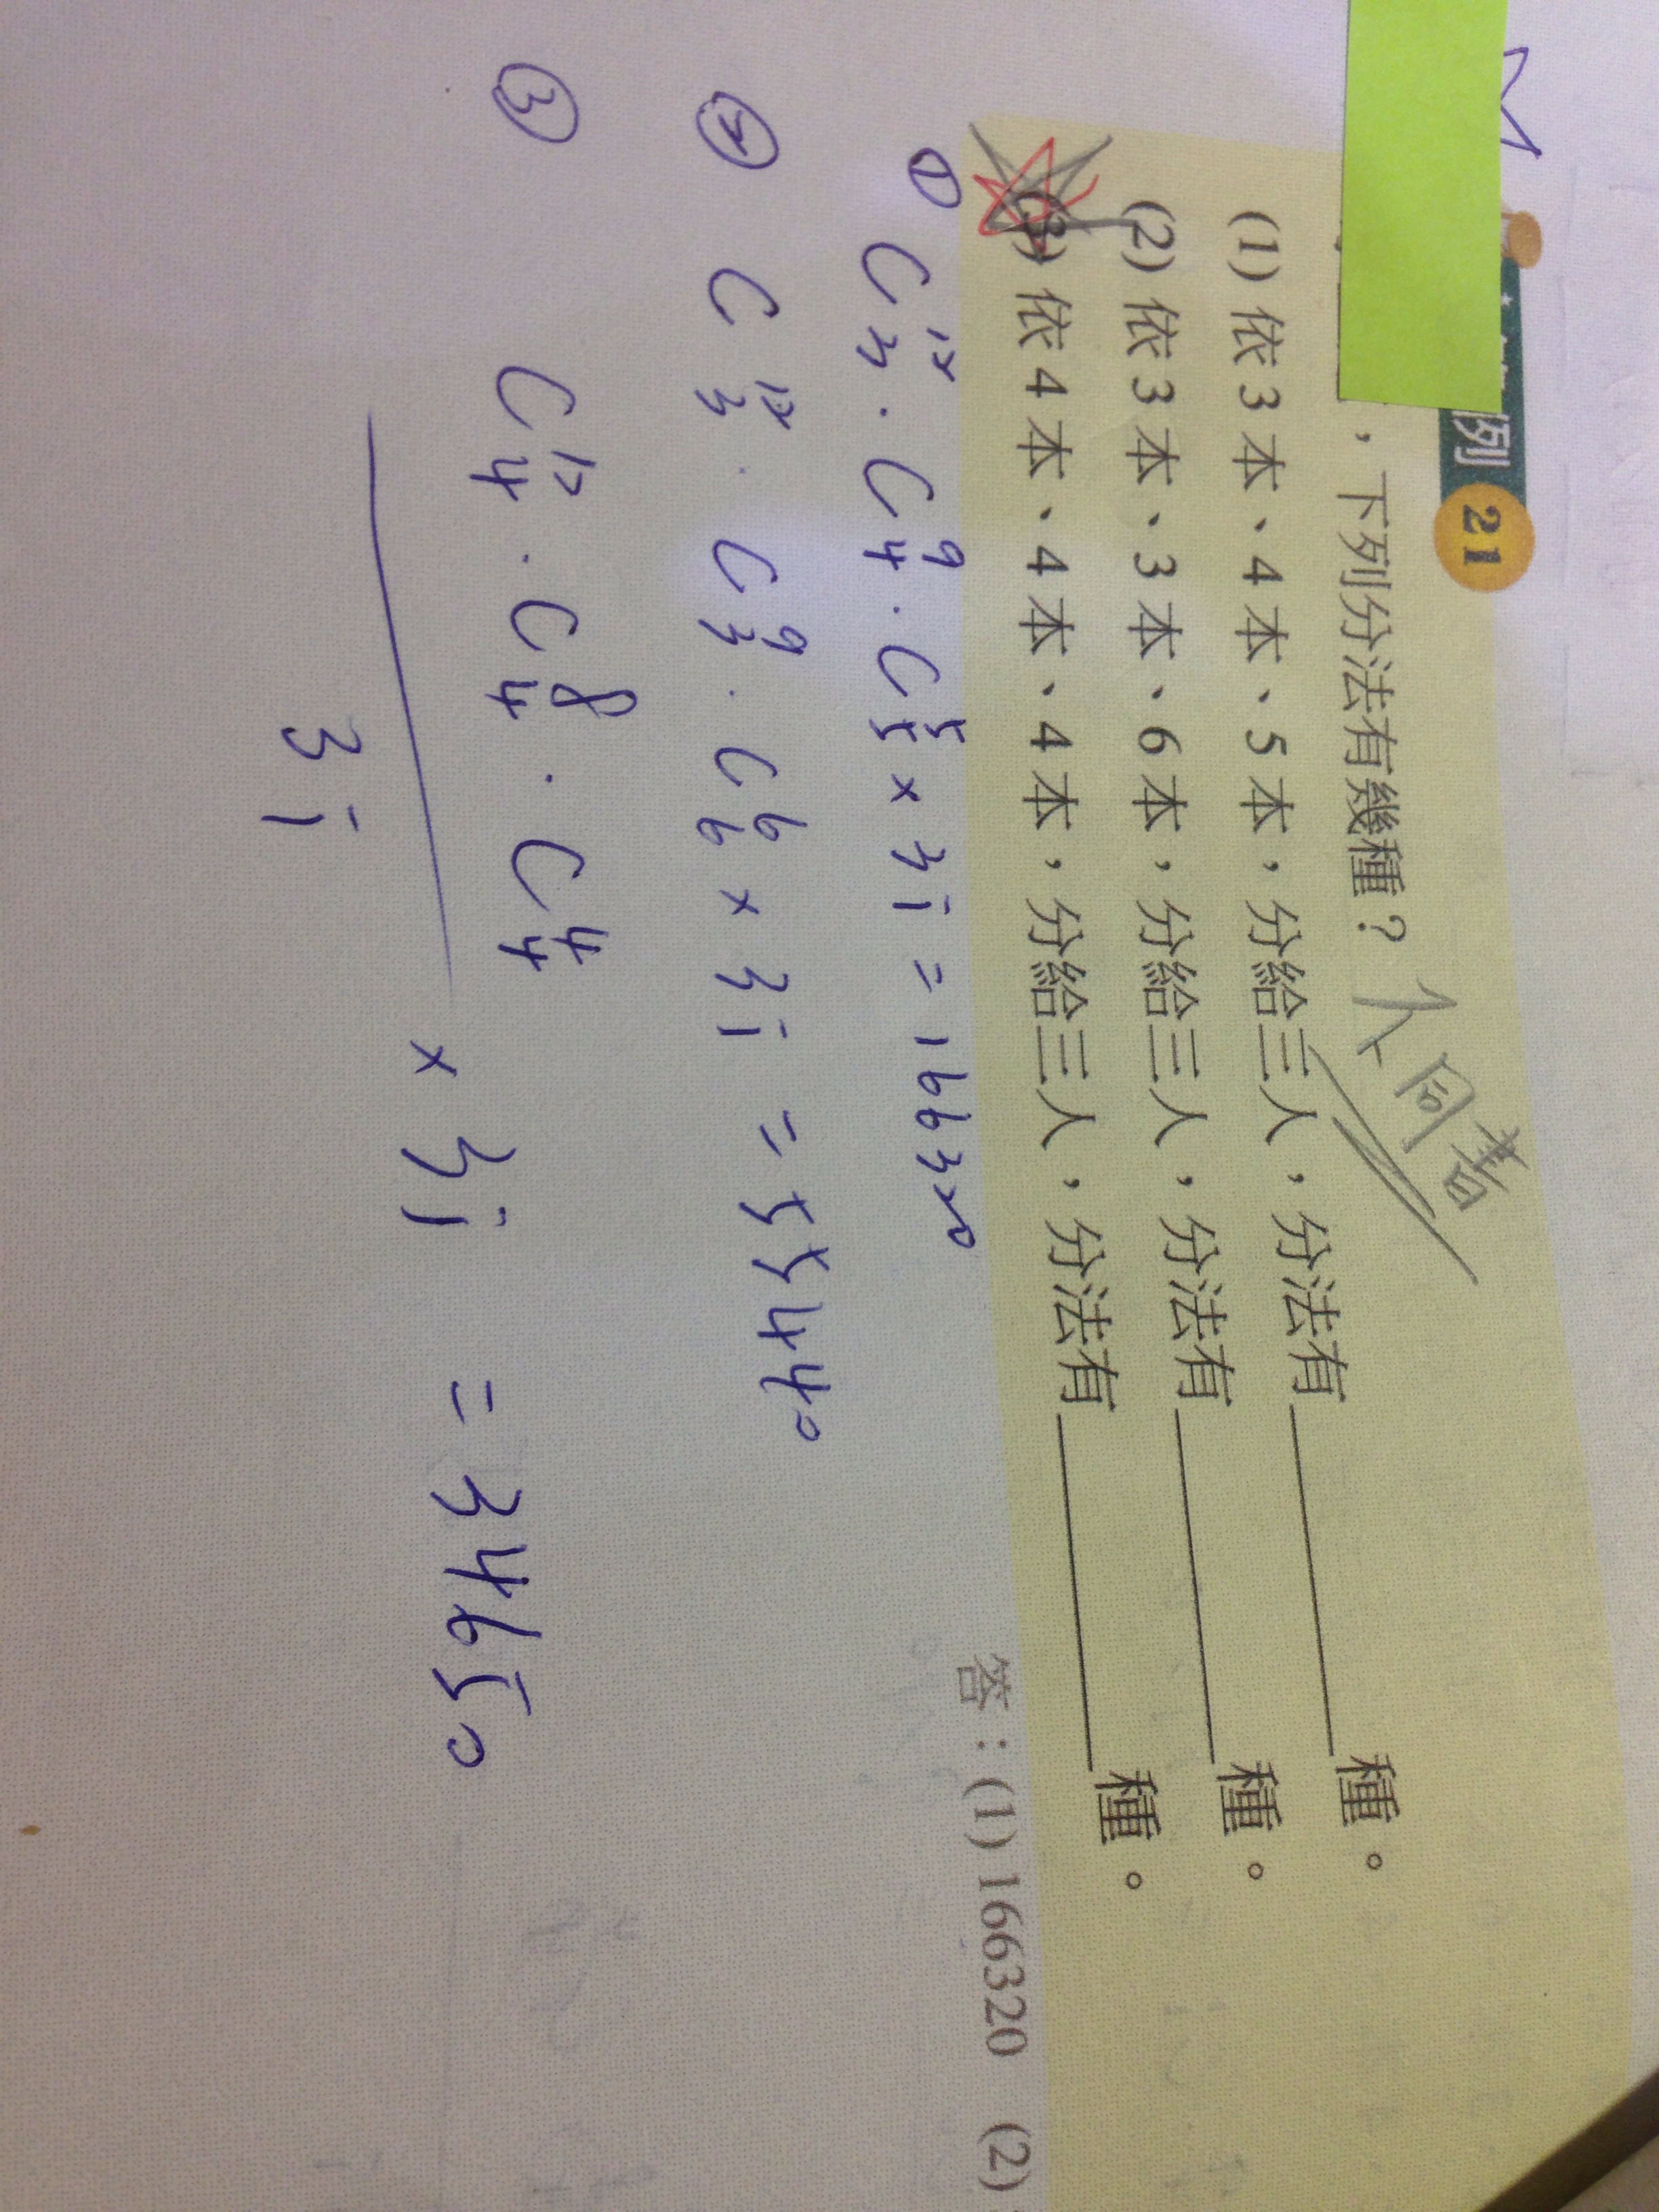 列 21
，下列分法有幾種？ 人同
(1) 依 3 本、4 本、5 本，分給三人，分法有＿＿＿＿種。
(2) 依 3 本、3 本、6 本，分給三人，分法有＿＿＿＿種。
(3) 依 4 本、4 本、4 本，分給三人，分法有＿＿＿＿種。
答：(1) 166320 (2)
① C¹²₃ · C⁹₄ · C⁵₅ × 3! = 166320
② C¹²₃ · C⁹₃ · C⁶₆ × 3! = 55440
③ C¹²₄ · C⁸₄ · C⁴₄
× 3! = 34650
3!